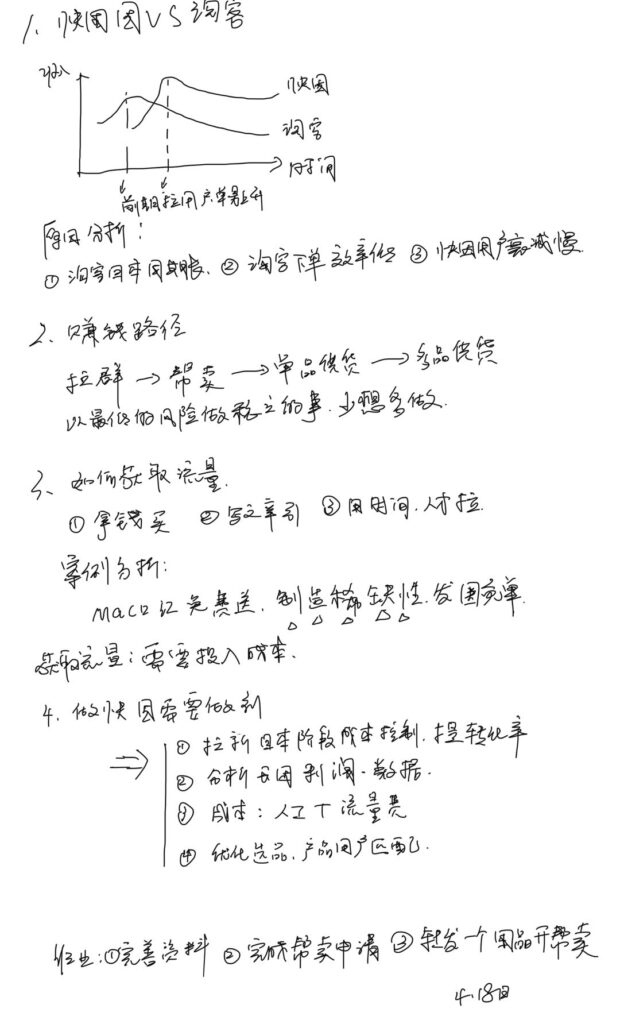 1. 快团团VS淘客
收入
快团
淘客
时间
前期拉用户单量上升
原因分析:
① 淘客回本周期长. ② 淘客下单效率低 ③ 快团用户衰减慢
2. 赚钱路径
拉群 → 帮卖 → 单品供货 → 多品供货
以最低的风险做稳定的事. 少想多做.
3. 如何获取流量.
① 拿钱买 ② 写文章引 ③ 用时间.人才拉.
案例分析:
MAC口红免费送. 制造稀缺性. 发圈充单.
获取流量: 需要投入成本.
4. 做快团需要做到
⇒ ① 拉新回本阶段成本控制. 提转化率
② 分析每团利润.数据.
③ 成本: 人工 + 流量费
④ 优化选品. 产品用户匹配.
作业: ①完善资料 ② 完成帮卖申请 ③ 转发一个团品开帮卖
4.18日